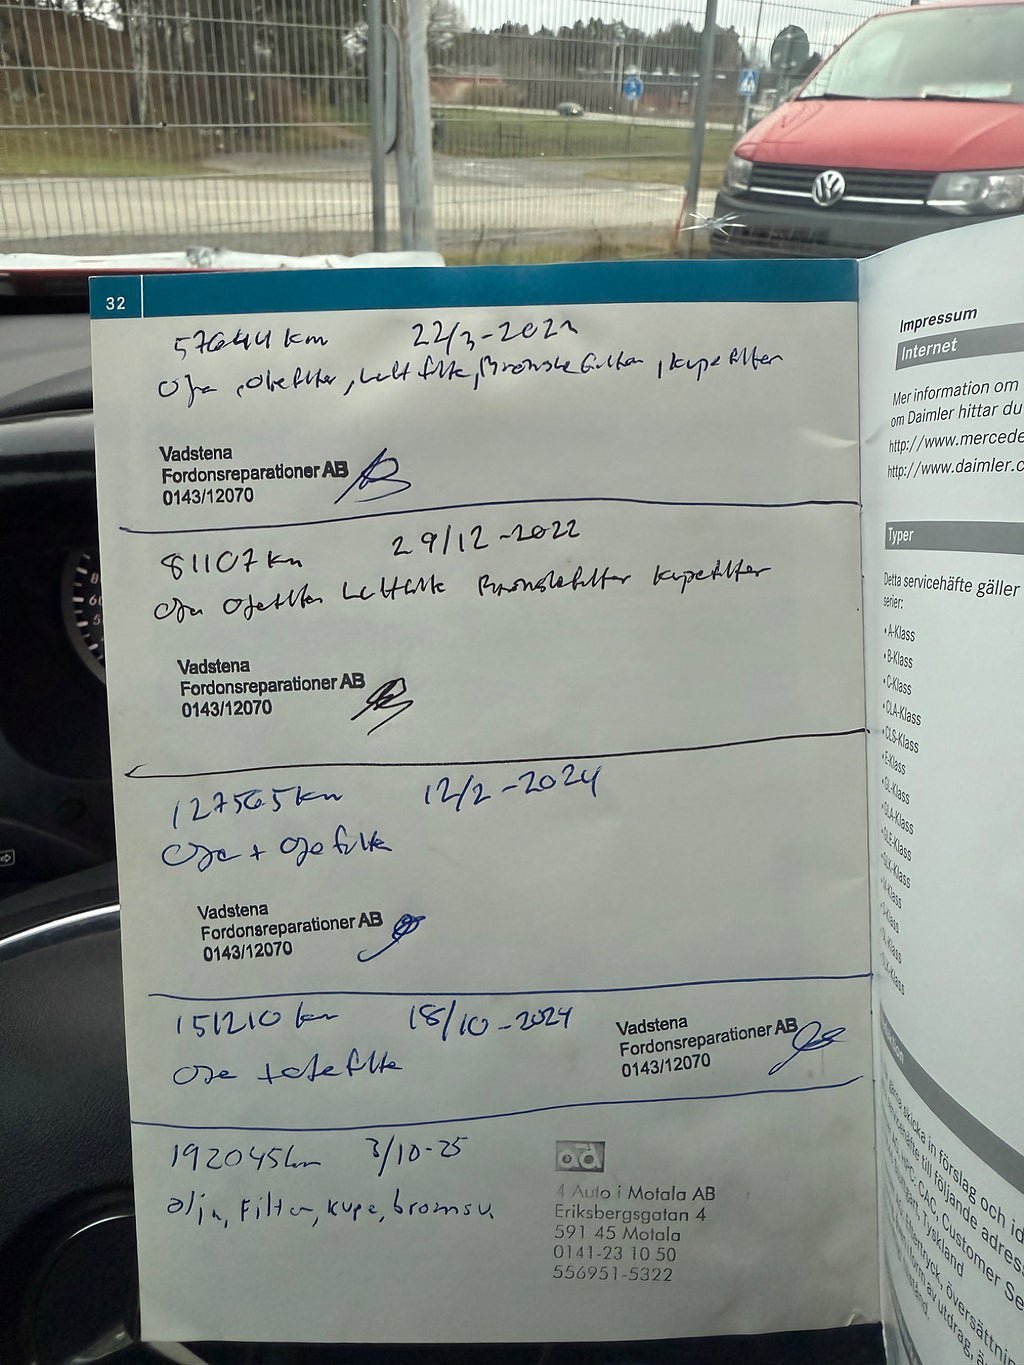 32
57644 km 22/3-2022
Olja, Oljefilter, Luftfilter, Bränslefilter, kupefilter
Vadstena
Fordonsreparationer AB
0143/12070
81107 km 29/12-2022
Olja Oljefilter Luftfilter Bränslefilter kupefilter
Vadstena
Fordonsreparationer AB
0143/12070
127565 km 12/2-2024
Olja + Oljefilter
Vadstena
Fordonsreparationer AB
0143/12070
151210 km 18/10-2024
Olja + oljefilter
Vadstena
Fordonsreparationer AB
0143/12070
192045 km 3/10-25
olja, Filter, kupe, bromsv
ad
4 Auto i Motala AB
Eriksbergsgatan 4
591 45 Motala
0141-23 10 50
556951-5322
Impressum
Internet
Mer information om
om Daimler hittar du
http://www.mercede
http://www.daimler.c
Typer
Detta servicehäfte gäller
serier:
• A-Klass
• B-Klass
• C-Klass
• CLA-Klass
• CLS-Klass
• E-Klass
• GL-Klass
• GLA-Klass
• GLE-Klass
• GLK-Klass
skicka in förslag och id
servicehäfte till följande adress
HPC: CAC, Customer Se
Stuttgart, Tyskland
eftertryck, översättnin
form av utdrag, ä